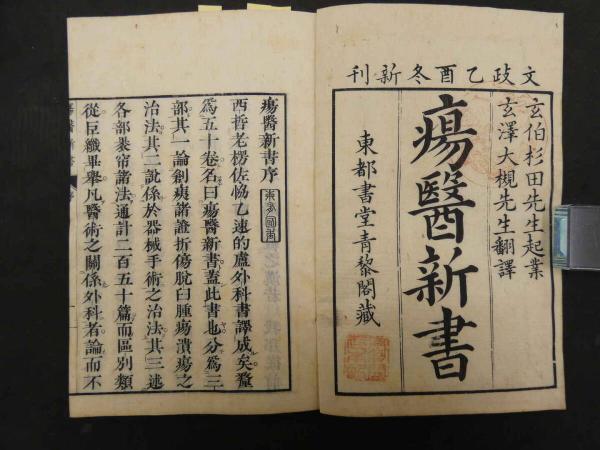 文政乙酉冬新刊
玄伯杉田先生起業
玄澤大槻先生翻譯
瘍醫新書
東都書堂青黎閣藏
瘍醫新書序
西哲老楞佐協乙速的盧外科書譯成矣釐
為五十卷名曰瘍醫新書蓋此書也分為三
部其一論創痍諸證折傷脫臼腫瘍潰瘍之
治法其二說係於器械手術之治法其三述
各部裹帘諸法通計二百五十篇而區別類
從巨纖畢舉凡醫術之關係外科者論而不